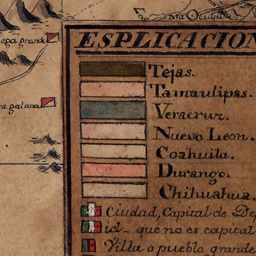 epa grand
ma Oculta
ra galana
ESPLICACION
Tejas.
Tamaulipas.
Veracruz.
Nuevo Leon.
Coahuila.
Durango.
Chihuahua.
Ciudad, Capital de De
id. que no es capital
Villa o pueblo grande